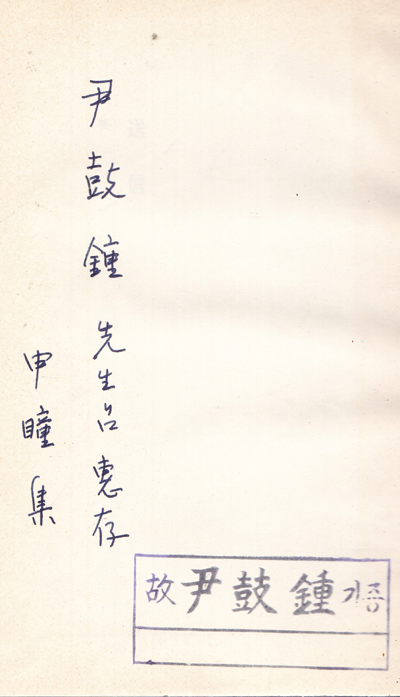 尹鼓鍾 先生 惠存
申瞳集
故 尹鼓鍾 기증